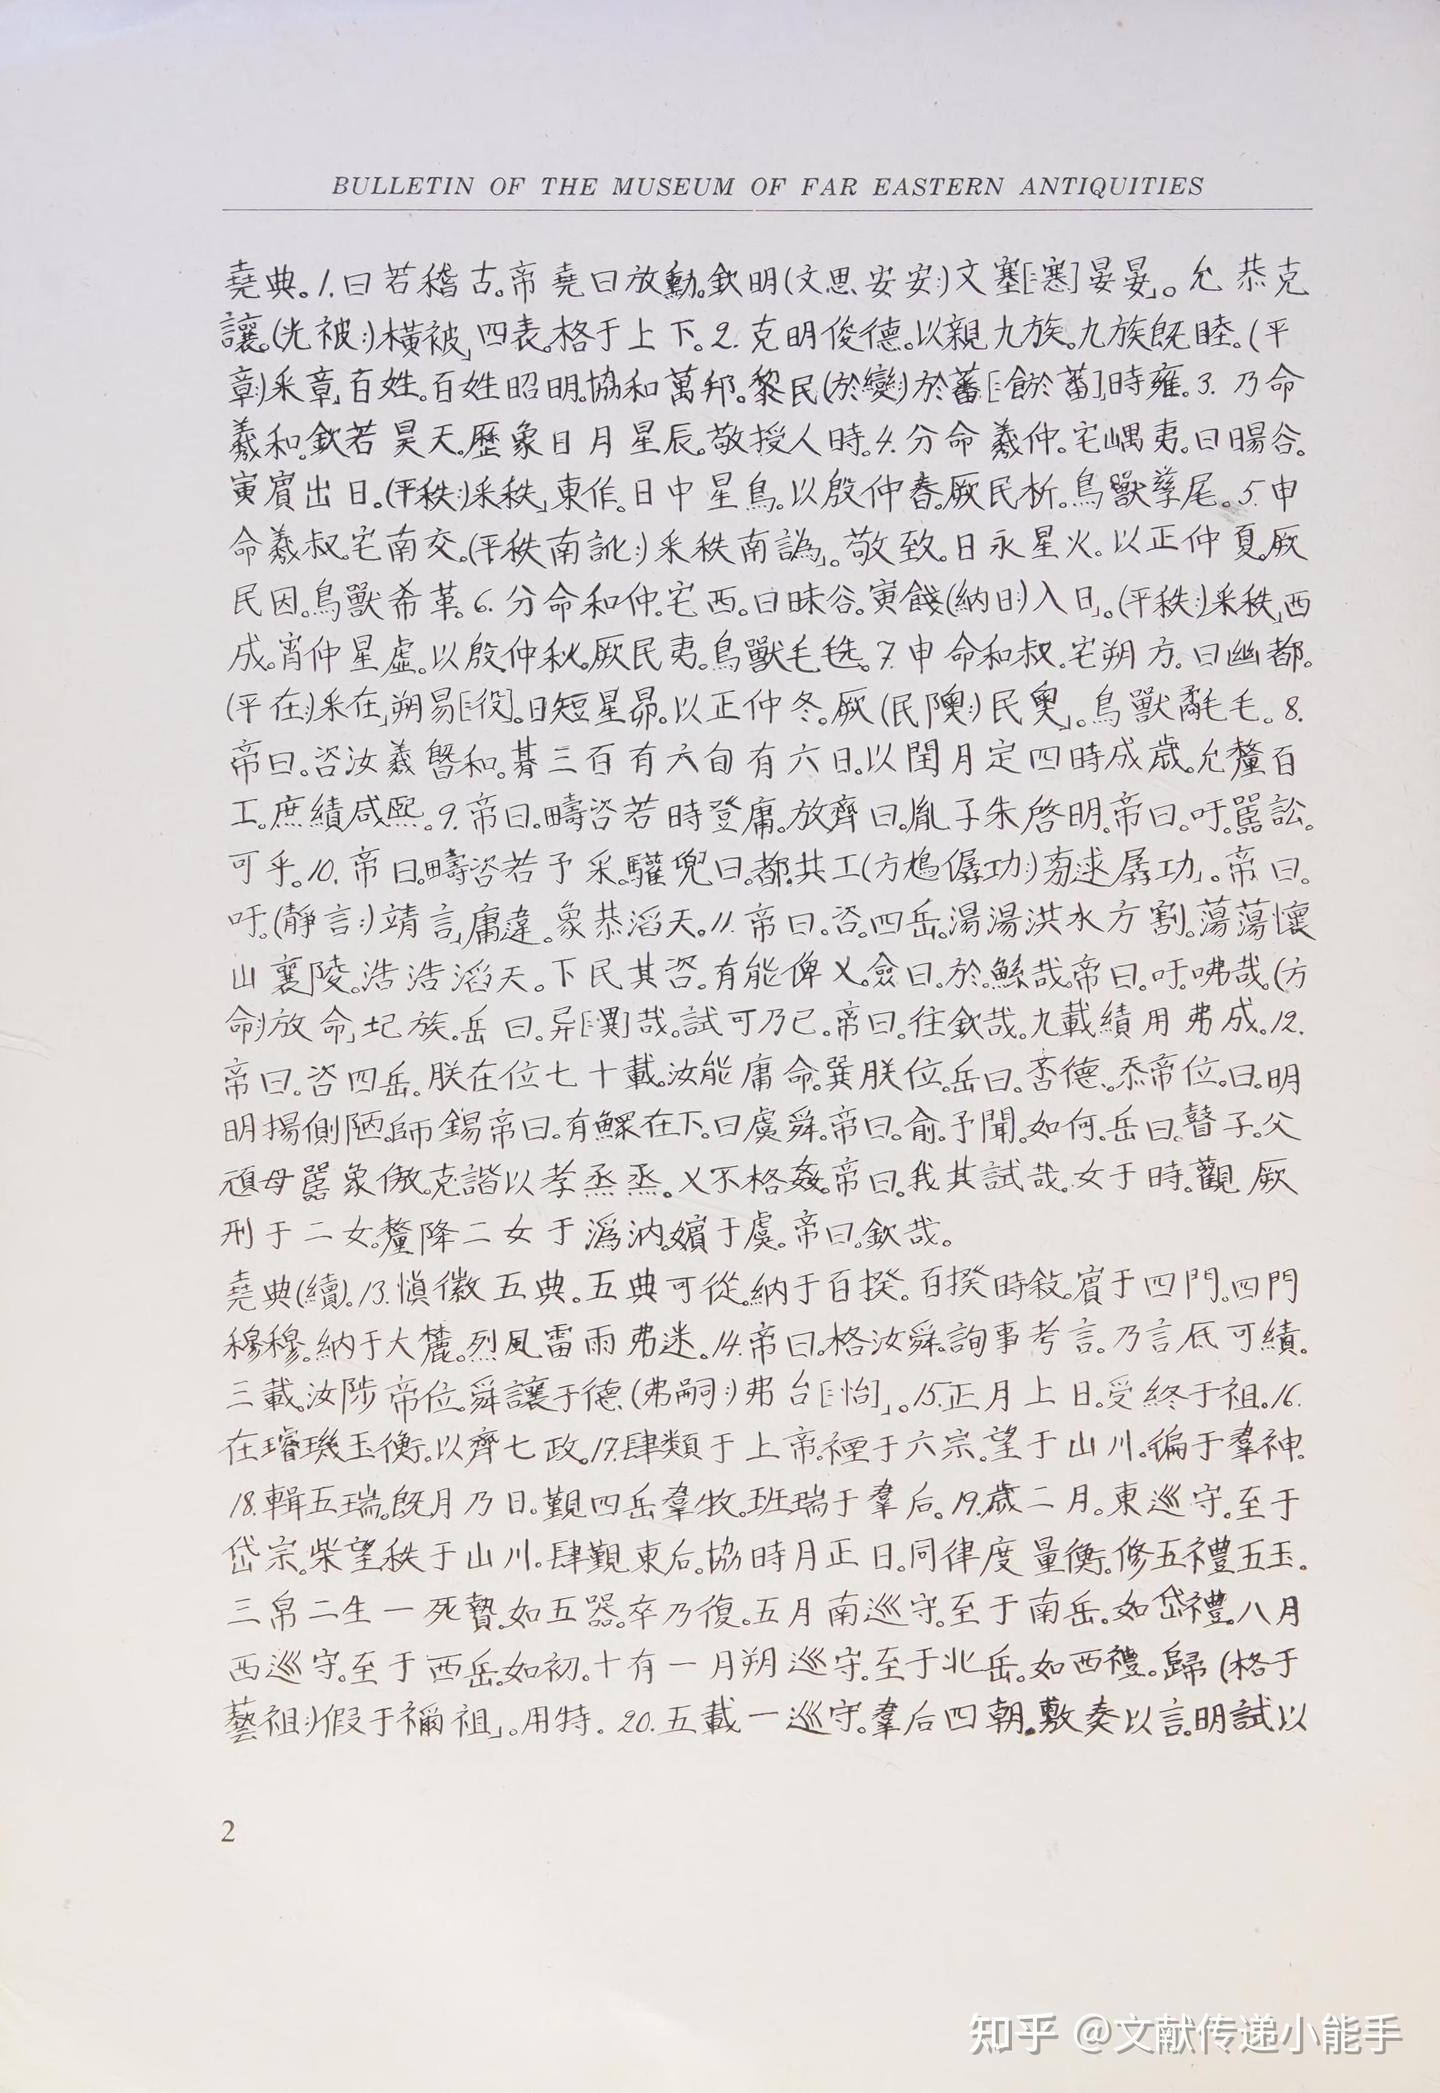 BULLETIN OF THE MUSEUM OF FAR EASTERN ANTIQUITIES
堯典。1.曰若稽古。帝堯曰放勳。欽明(文思安安:)文塞[=寒]晏晏」。允恭克
讓。(光被:)橫被」四表。格于上下。2.克明俊德。以親九族。九族旣睦。(平
章:)釆章」百姓。百姓昭明。協和萬邦。黎民(於變:)於蕃[=飭於蕃]」時雍。3.乃命
羲和。欽若昊天。歷象日月星辰。敬授人時。4.分命羲仲。宅嵎夷。曰暘谷。
寅賓出日。(平秩:)釆秩」東作。日中星鳥。以殷仲春。厥民析。鳥獸孳尾。5.申
命羲叔。宅南交。(平秩南訛:)釆秩南譌」。敬致。日永星火。以正仲夏。厥
民因。鳥獸希革。6.分命和仲。宅西。曰昧谷。寅餞(納日:)入日」。(平秩:)釆秩」西
成。宵仲星虛。以殷仲秋。厥民夷。鳥獸毛毨。7.申命和叔。宅朔方。曰幽都。
(平在:)釆在」朔易[=役]。日短星昴。以正仲冬。厥(民隩:)民奧」。鳥獸氄毛。8.
帝曰。咨汝羲曁和。朞三百有六旬有六日。以閏月定四時成歲。允釐百
工。庶績咸熙。9.帝曰。疇咨若時登庸。放齊曰。胤子朱啓明。帝曰。吁。嚚訟。
可乎。10.帝曰。疇咨若予采。驩兜曰。都。共工(方鳩僝功:)旁逑孱功」。帝曰。
吁。(靜言:)靖言」庸違。象恭滔天。11.帝曰。咨。四岳。湯湯洪水方割。蕩蕩懷
山襄陵。浩浩滔天。下民其咨。有能俾乂。僉曰。於。鯀哉。帝曰。吁。咈哉。(方
命:)放命」圮族。岳曰。异[=異]哉。試可乃已。帝曰。往欽哉。九載績用弗成。12.
帝曰。咨四岳。朕在位七十載。汝能庸命。巽朕位。岳曰。否德。忝帝位。曰。明
明揚側陋。師錫帝曰。有鰥在下。曰虞舜。帝曰。俞。予聞。如何。岳曰。瞽子。父
頑母嚚象傲。克諧以孝烝烝。乂不格姦。帝曰。我其試哉。女于時。觀厥
刑于二女。釐降二女于潙汭。嬪于虞。帝曰。欽哉。
堯典(續)。13.愼徽五典。五典可從。納于百揆。百揆時敍。賓于四門。四門
穆穆。納于大麓。烈風雷雨弗迷。14.帝曰。格汝舜。詢事考言。乃言厎可績。
三載。汝陟帝位。舜讓于德。(弗嗣:)弗台[=怡]」。15.正月上日。受終于祖。16.
在璿璣玉衡。以齊七政。17.肆類于上帝。禋于六宗。望于山川。徧于羣神。
18.輯五瑞。旣月乃日。覲四岳羣牧。班瑞于羣后。19.歲二月。東巡守。至于
岱宗。柴望秩于山川。肆覲東后。協時月正日。同律度量衡。修五禮五玉。
三帛二生一死贄。如五器。卒乃復。五月南巡守。至于南岳。如岱禮。八月
西巡守。至于西岳。如初。十有一月朔巡守。至于北岳。如西禮。歸(格于
藝祖:)假于禰祖」。用特。20.五載一巡守。羣后四朝。敷奏以言。明試以
2
知乎 @文献传递小能手